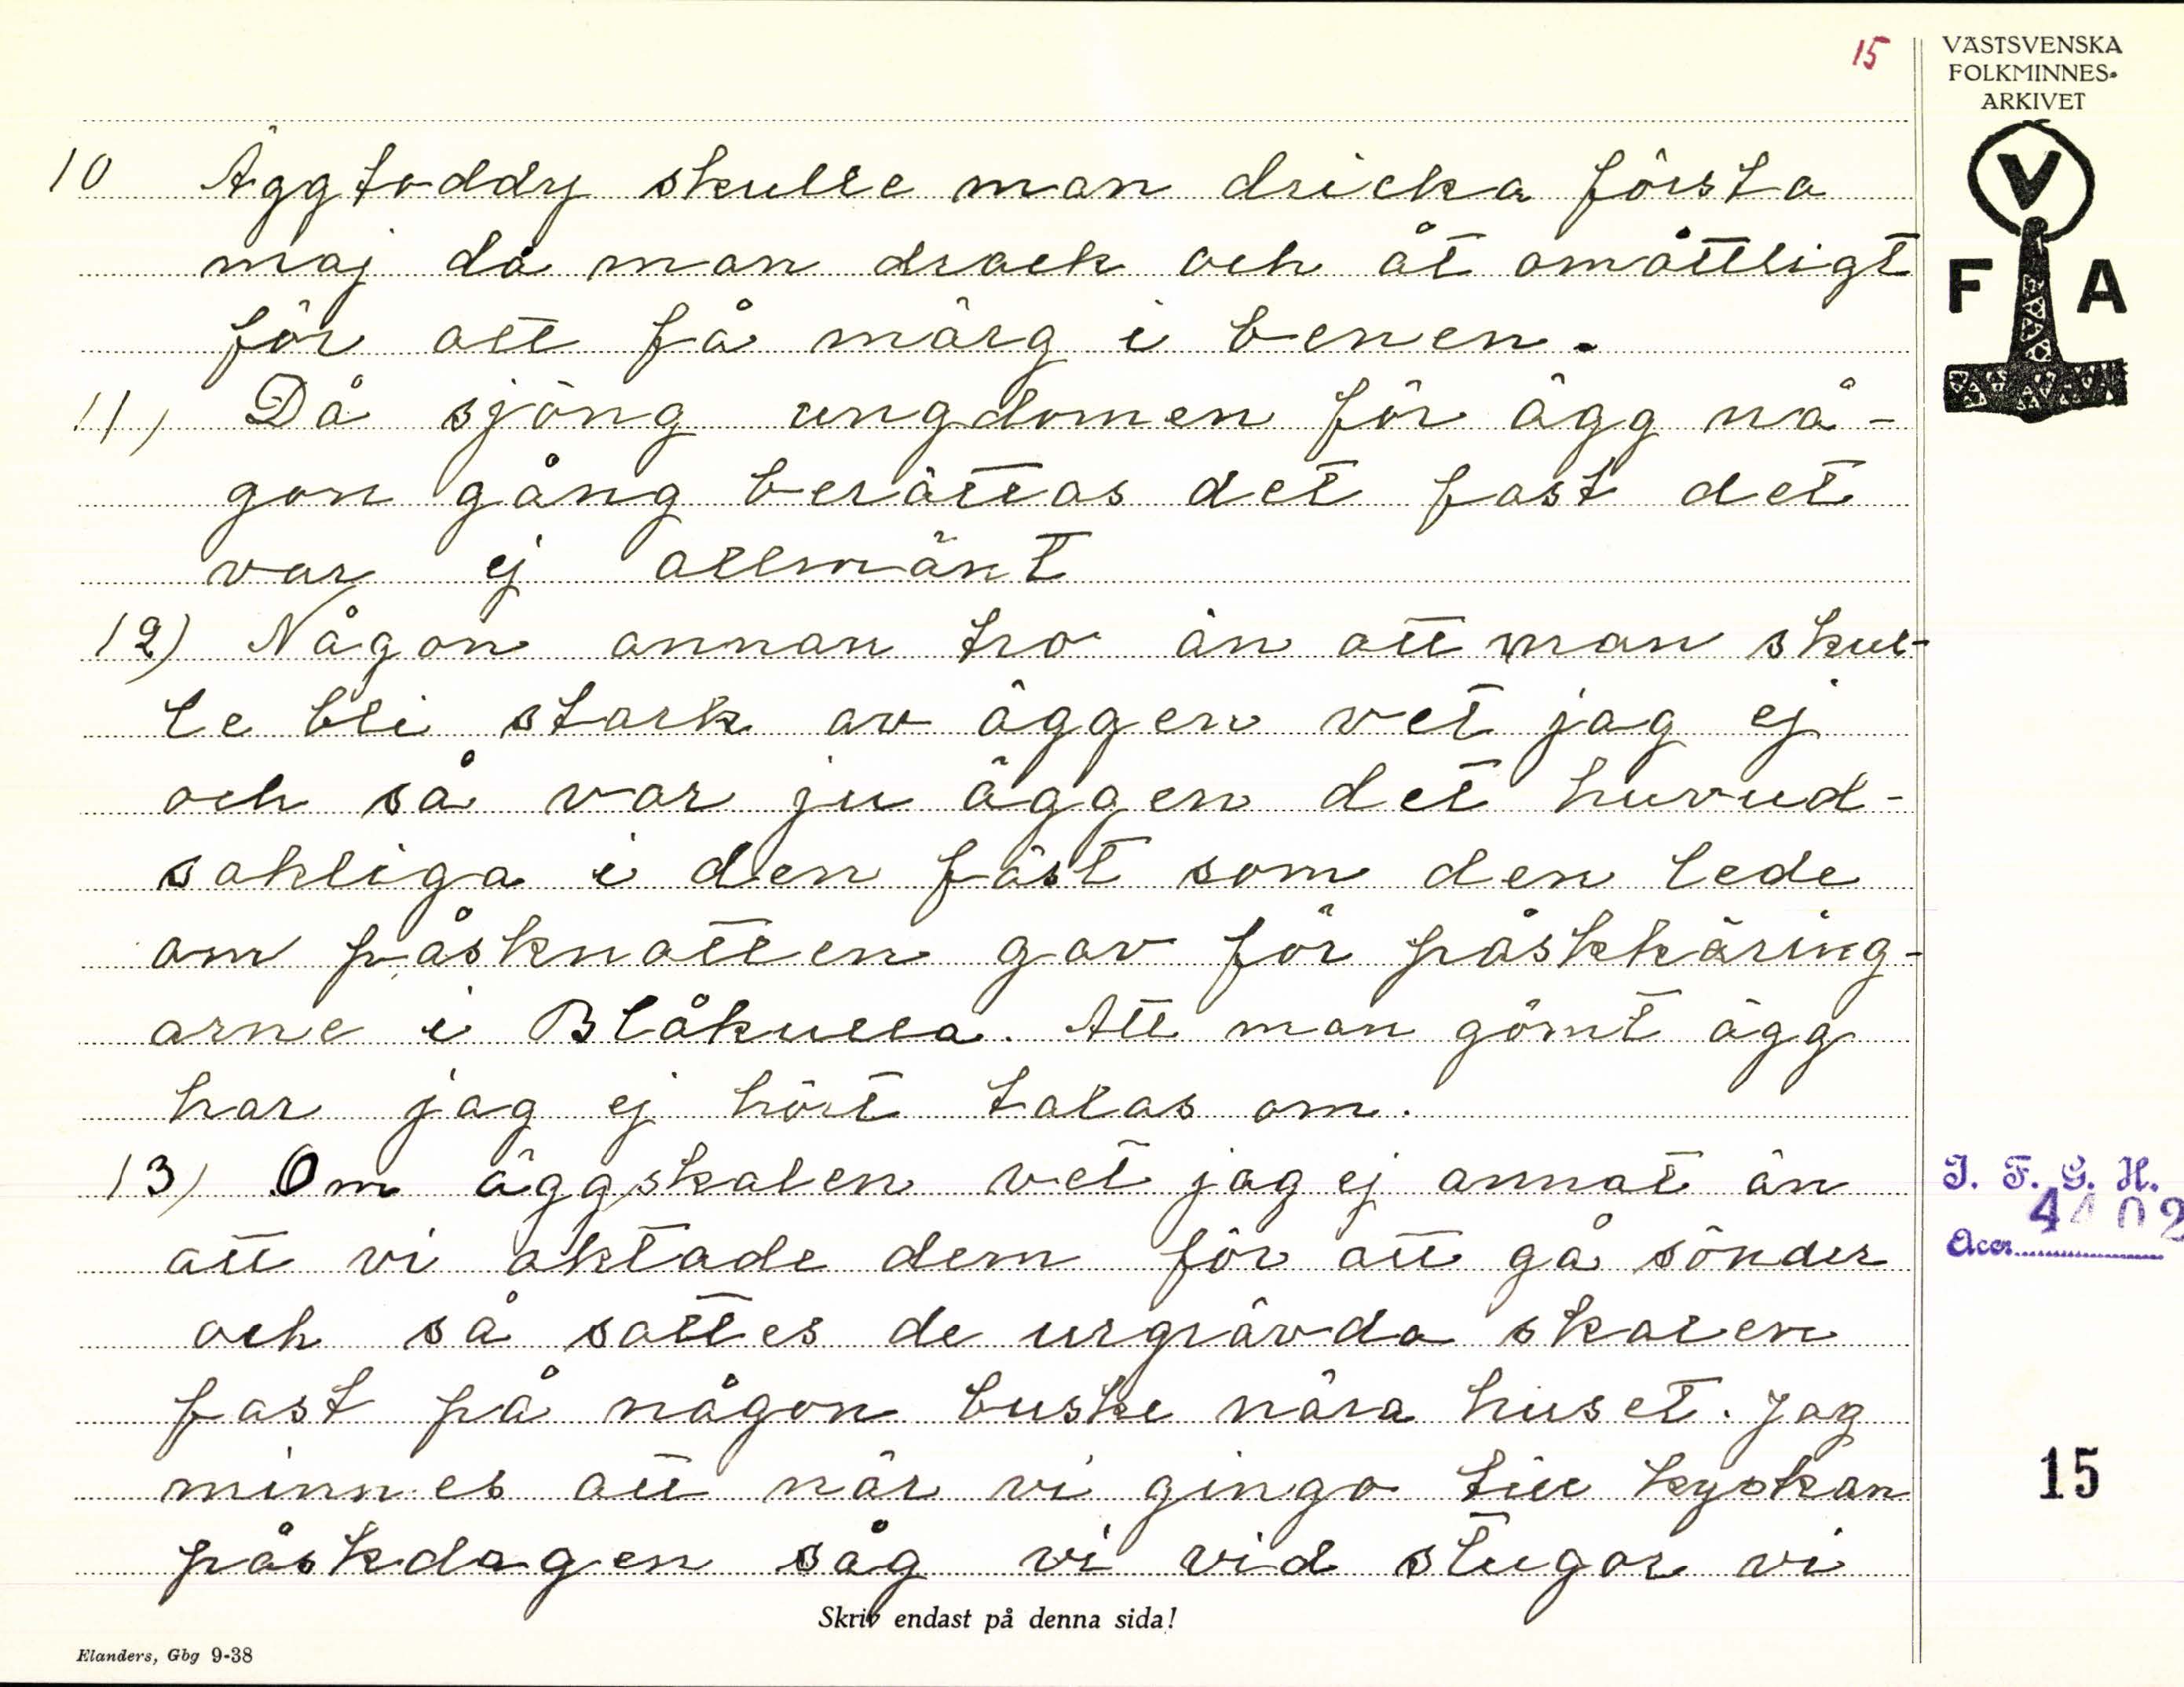 15
VÄSTSVENSKA
FOLKMINNES-
ARKIVET
V
F A
10 Äggtoddy skulle man dricka första
maj då man drack och åt omåttligt
för att få märg i benen.
11) Då sjöng ungdomen för ägg nå-
gon gång berättas det fast det
var ej allmänt
12) Någon annan tro än att man skul-
le bli stark av äggen vet jag ej
och så var ju äggen det huvud-
sakliga i den fäst som den lede
om påsknatten gav för påskkäring-
arne i Blåkulla. Att man gömt ägg
har jag ej hört talas om.
13) Om äggskalen vet jag ej annat än
att vi aktade dem för att gå sönder
och så sattes de urgrävda skalen
fast på någon buske nära huset. Jag
minnes att när vi gingo till kyrkan
påskdagen såg vi vid stugor vi
I. F. G. H.
4402
Acc.
15
Skriv endast på denna sida!
Elanders, Gbg 9-38